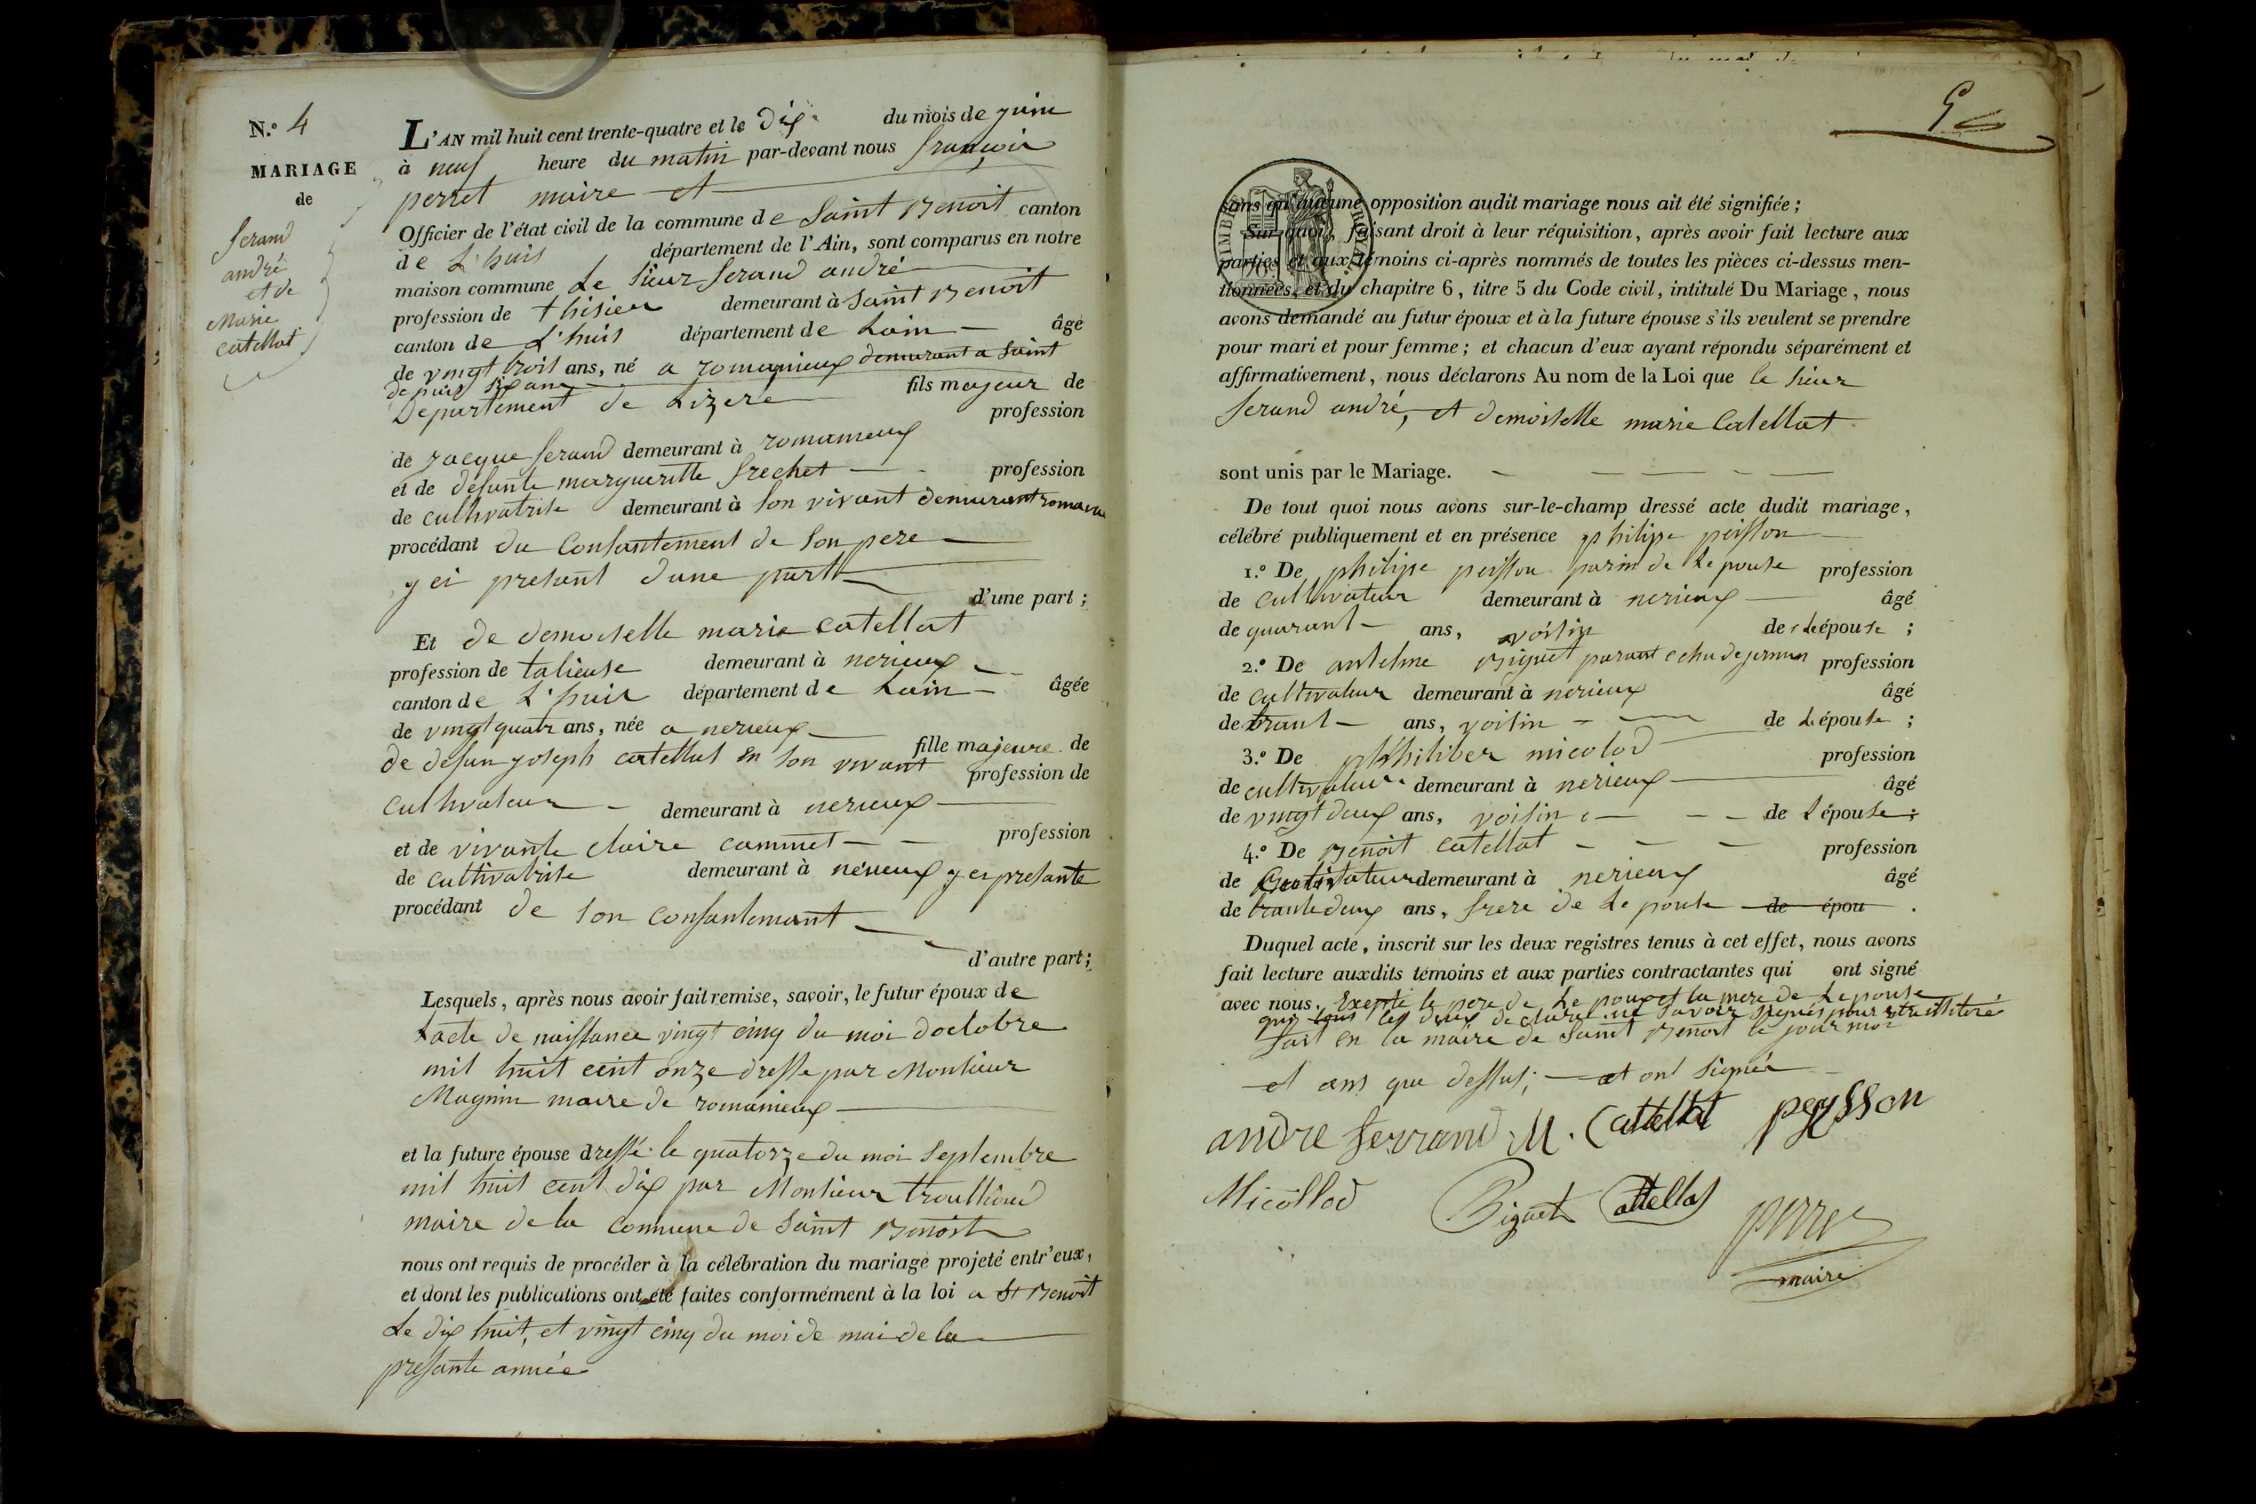 N.º 4
MARIAGE
de
Serand
andré
et de
Marie
catellat
L'AN mil huit cent trente-quatre et le dix du mois de juin
à neuf heure du matin par-devant nous françois
perret maire et
Officier de l'état civil de la commune de Saint Benoit canton
de L'huis département de l'Ain, sont comparus en notre
maison commune Le Sieur Serand andré
profession de thisieu demeurant à Saint Benoit
canton de L'huis département de Lain âgé
de vingt trois ans, né a romanieux demeurant a Saint
depuis six ans
Departement de Lizere fils majeur de
profession
de jacque Serand demeurant à romanieux
et de défunte margueritte frechet profession
de cultivatrise demeurant à Son vivant demeurant romanieu
procédant du Consantement de Son pere
y ci presant dune part
d'une part ;
Et de demoiselle marie catellat
profession de talieuse demeurant à nerieux
canton de L'huis département de Lain âgée
de vingt quatr ans, née a nerieux
de defun joseph catellat en Son vivant fille majeure de
profession de
cultivateur demeurant à nerieux
et de vivante claire cammet profession
de cultivatrise demeurant à nérieux y ci presante
procédant de Son Consantemant
d'autre part ;
Lesquels, après nous avoir fait remise, savoir, le futur époux de
Lacte de naissance vingt cinq du moi doctobre
mil huit cent onze dresse par Monsieur
Magnin maire de romanieux
et la future épouse dressé le quatorze du moi Septembre
mil huit cent dix par Monsieur trouilloud
maire de la Commune de Saint Benoit
nous ont requis de procéder à la célébration du mariage projeté entr'eux,
et dont les publications ont été faites conformément à la loi a St Benoit
Le dix huit, et vingt cinq du moi de mai de la
presante année
sans qu'aucune opposition audit mariage nous ait été signifiée ;
Sur quoi, faisant droit à leur réquisition, après avoir fait lecture aux
parties et aux témoins ci-après nommés de toutes les pièces ci-dessus men-
tionnées, et du chapitre 6, titre 5 du Code civil, intitulé Du Mariage, nous
avons demandé au futur époux et à la future épouse s'ils veulent se prendre
pour mari et pour femme ; et chacun d'eux ayant répondu séparément et
affirmativement, nous déclarons Au nom de la Loi que le Sieur
Serand andré, et demoiselle marie Catellat
sont unis par le Mariage.
De tout quoi nous avons sur-le-champ dressé acte dudit mariage,
célébré publiquement et en présence philipe peisson
1.º De philipe peisson parin de Lepouse profession
de cultivateur demeurant à nerieux âgé
de quarant ans, voisin de Lépouse ;
2.º De antelme Biguet parant echu de jermin profession
de cultivateur demeurant à nerieux âgé
de trant ans, voisin de Lépouse ;
3.º De philiber micolod profession
de cultivateur demeurant à nerieux âgé
de vingt deux ans, voisin de Lépouse ;
4.º De Benoit Catellat profession
de Cultivateur demeurant à nerieux âgé
de trante deux ans, frere de Lepouse de épou .
Duquel acte, inscrit sur les deux registres tenus à cet effet, nous avons
fait lecture auxdits témoins et aux parties contractantes qui ont signé
avec nous. Exepté le pere de Lepoux et la mere de Lepouse
qui tous les deux déclaré ne Savoir Signés pour etre illiteré
fait en la maire de Saint Benoit le jour moi
et ans que dessus; et ont Signér
andre Serrand M. Cattellat peysson
Micollod Biguet Cattellat perret
maire